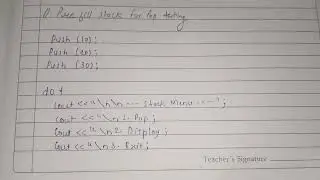 // Pre fill stack for Pop testing
Push (10);
Push (20);
Push (30);
do {
cout << "\n\n --- Stack Menu ---";
cout << "\n 1. Pop";
cout << "\n 2. Display";
cout << "\n 3. Exit";
Teacher's Signature